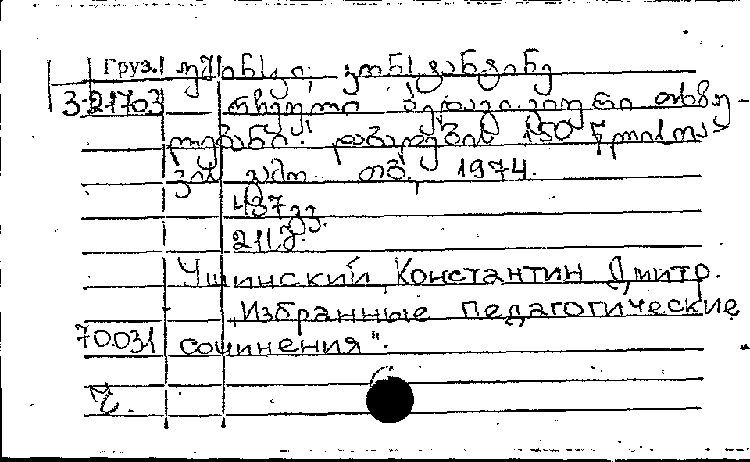 Груз. უშინსკი, კონსტანტინე
3-21703 რჩეული პედაგოგიური თხზუ-
ლებანი. დაბადების 150 წლისთა-
ვის გამო. თბ., 1974.
437 გვ.
211 გ.
Ушинский, Константин Дмитр.
„Избранные педагогические
70.031 сочинения".
ч.